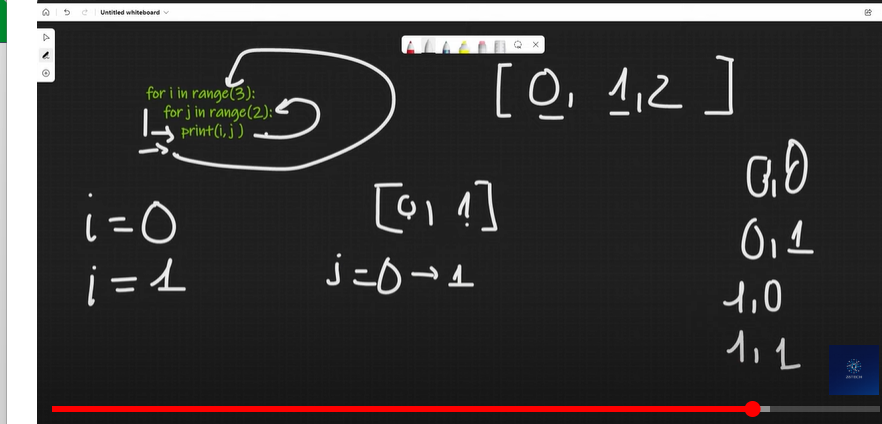 Untitled whiteboard
for i in range(3):
for j in range(2):
print(i, j )
[ 0, 1, 2 ]
[0, 1]
i = 0
i = 1
j = 0 → 1
0, 0
0, 1
1, 0
1, 1